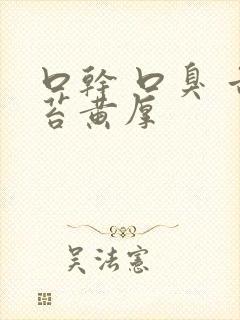 口幹 口臭 舌
苔黄厚
吴法憲